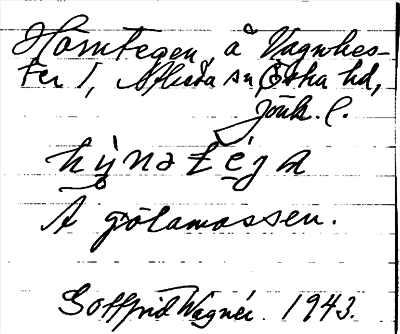 Hörntegen, å Vagnhes-
ter 1, Aflida sn Östra hd,
Jönk. l.
hỳnatéga
Å götamossen.
Gottfrid Wagnér. 1943.